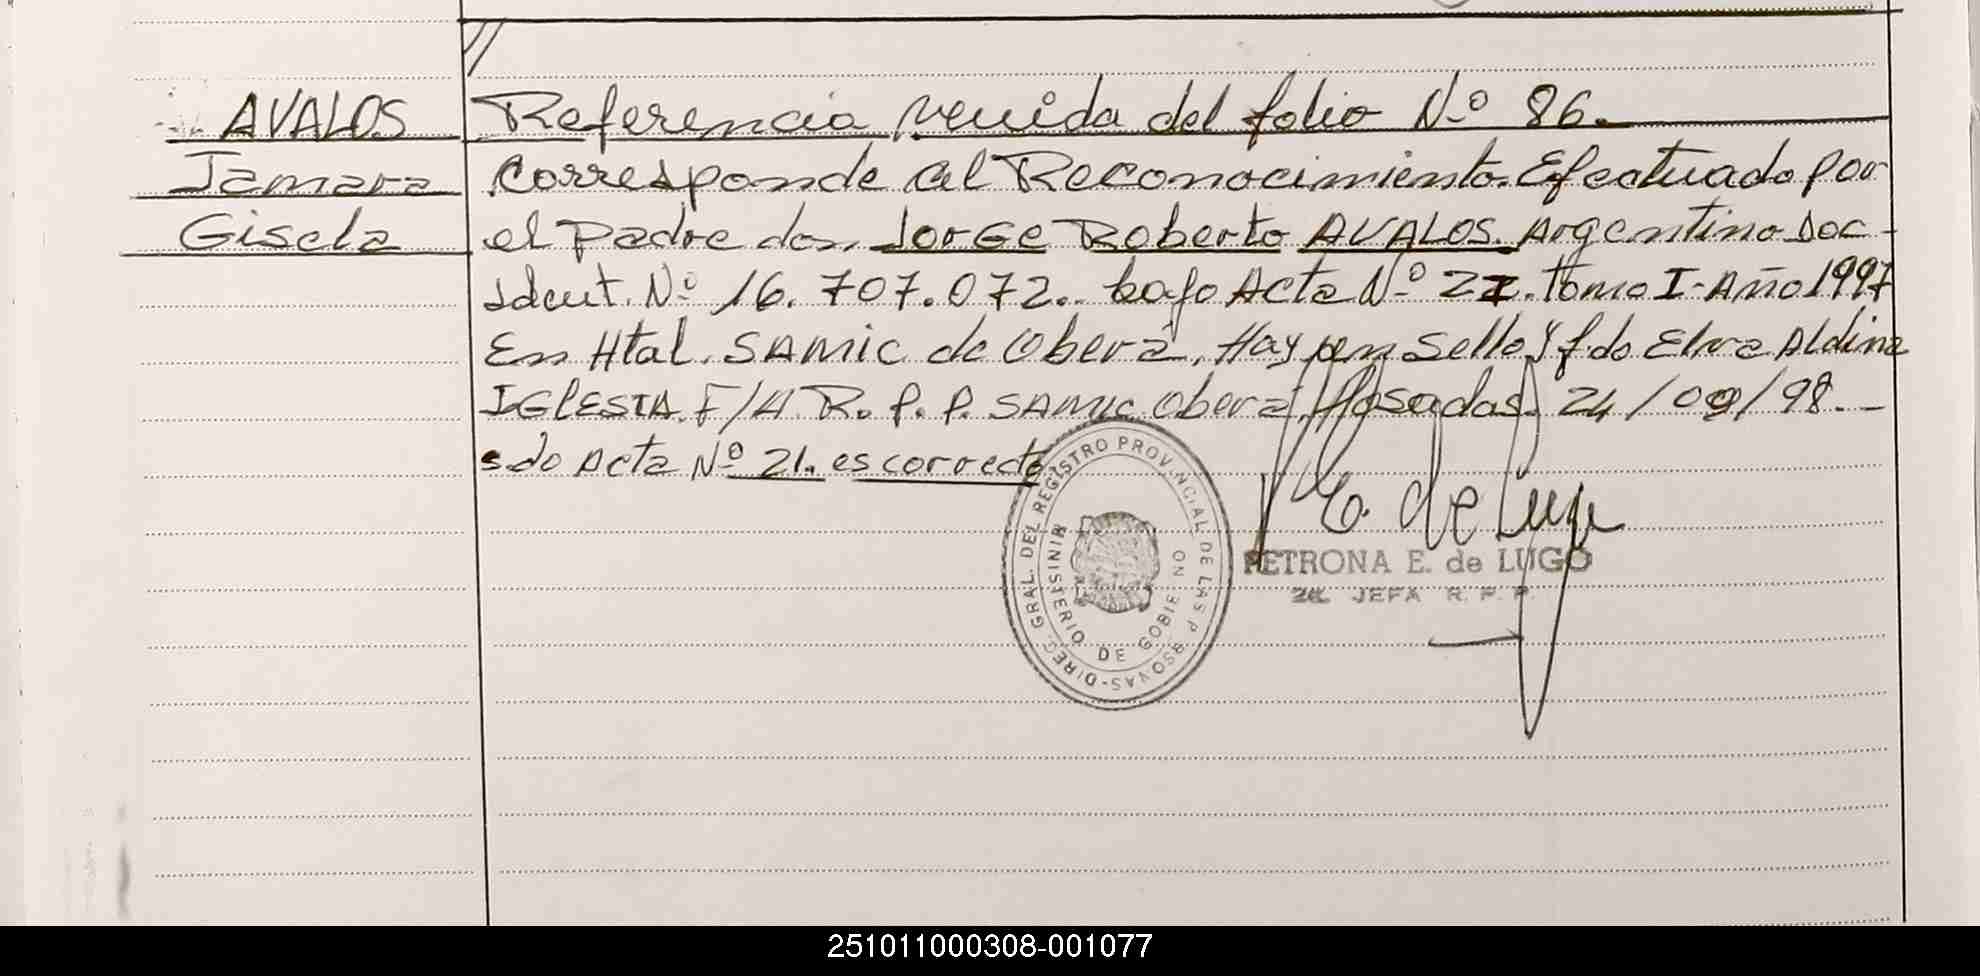 AVALOS
Tamara
Gisela
Referencia venida del folio Nº 86.
Corresponde al Reconocimiento. Efectuado por
el Padre don. Jorge Roberto AVALOS. Argentino Doc-
Ident. Nº 16.707.072. bajo Acta Nº 21. Tomo I-Año 1997
En Htal. SAMIC de Oberá. Hay un Sello y fdo Elva Aldina
IGLESIA. F/A R.P.P. SAMIC Oberá. Posadas 24/09/98.-
s.do Acta Nº 21. es correcto
DIREC. GRAL. DEL REGISTRO PROVINCIAL DE LAS PERSONAS-
MINISTERIO DE GOBIERNO
E. de Lugo
PETRONA E. de LUGO
2a. JEFA R. P. P.
251011000308-001077